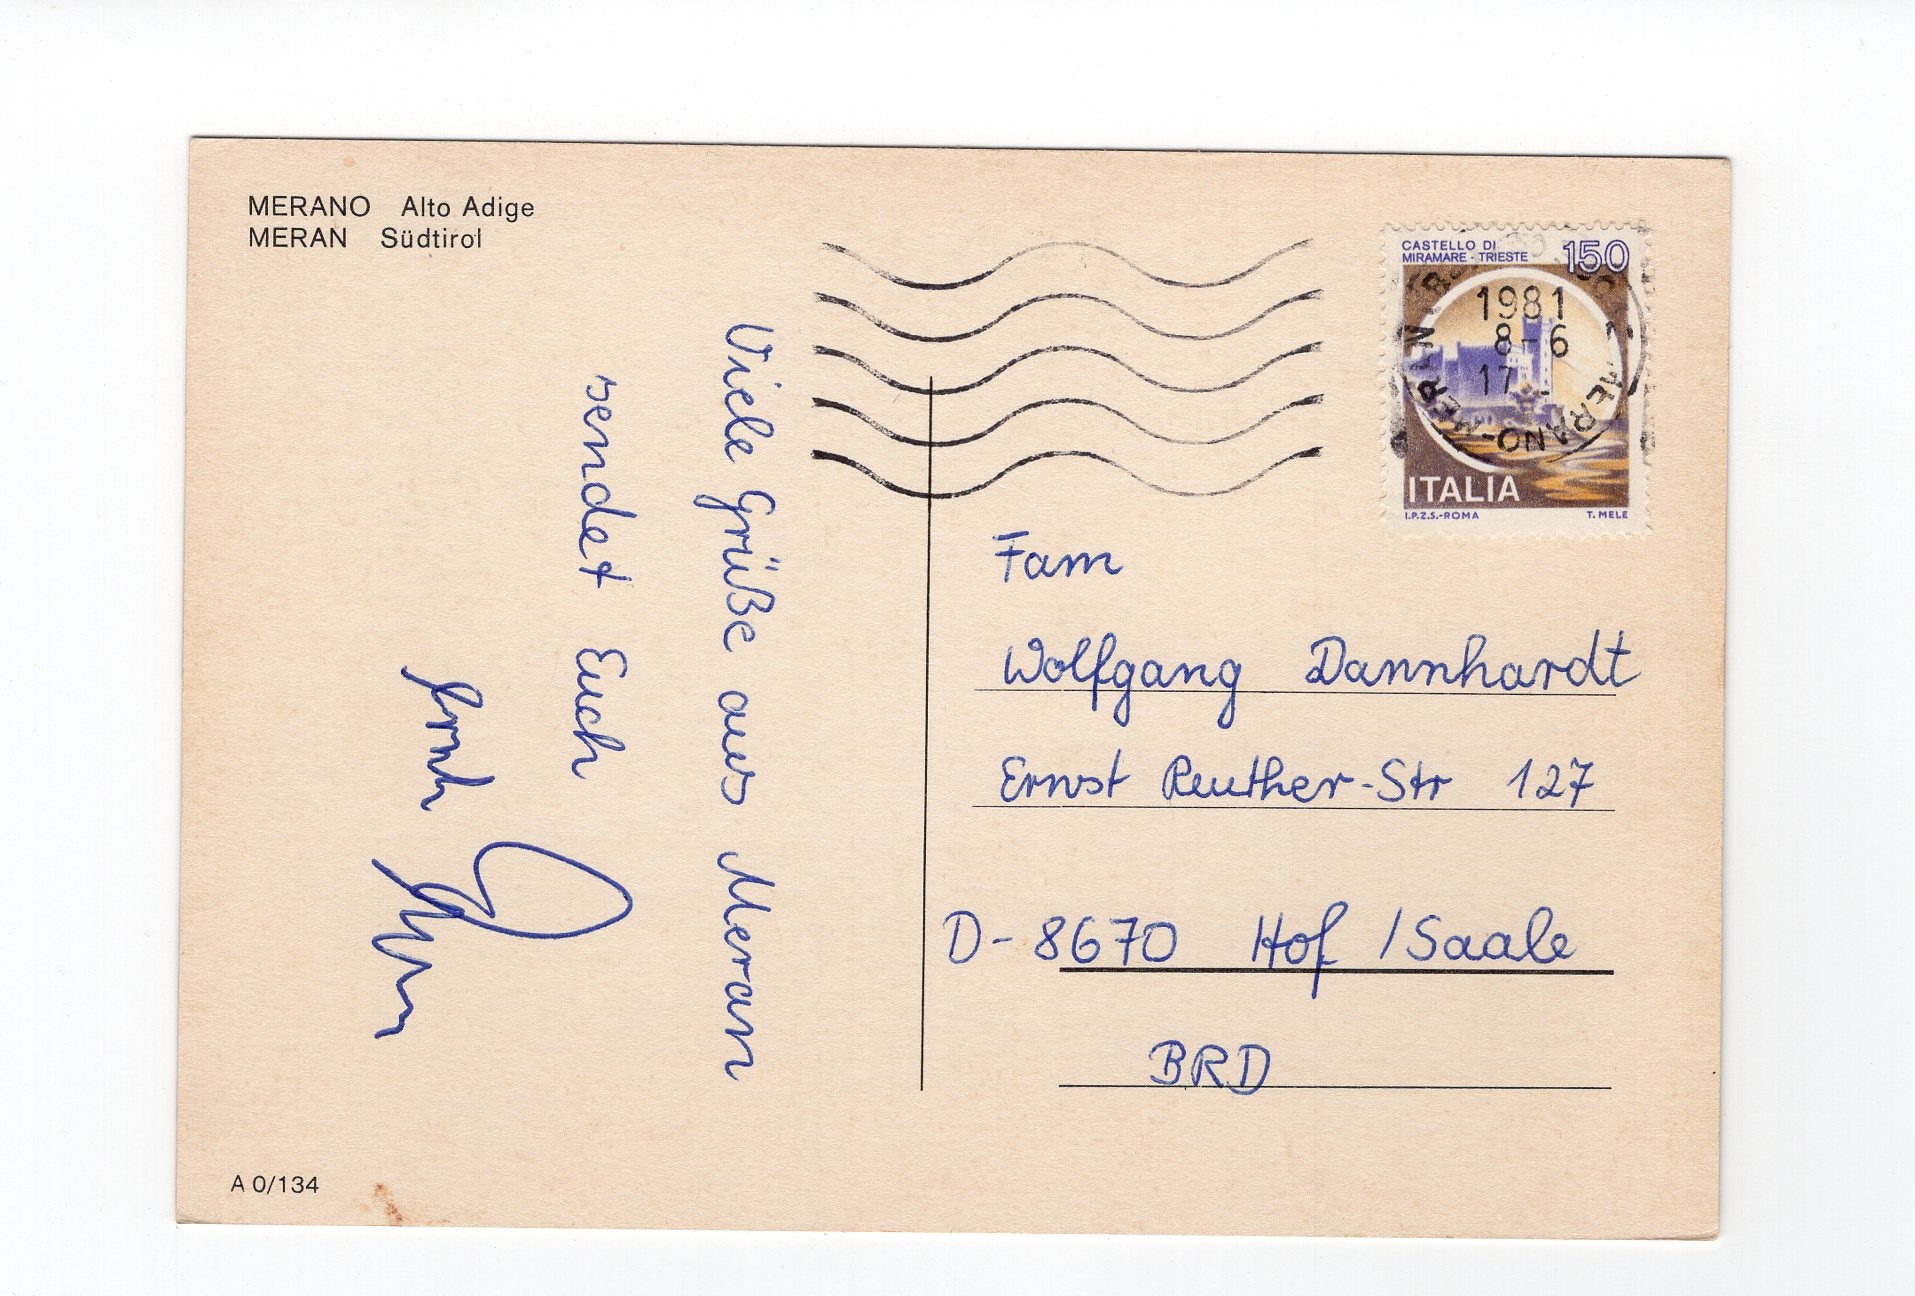 MERANO Alto Adige
MERAN Südtirol
CASTELLO DI
MIRAMARE - TRIESTE
150
1981
8-6
17
MERANO-MERAN
ITALIA
I.P.Z.S.-ROMA T. MELE
Viele Grüße aus Meran
sendet Euch
Fam
Wolfgang Dannhardt
Ernst Reuther-Str 127
D-8670 Hof /Saale
BRD
A 0/134